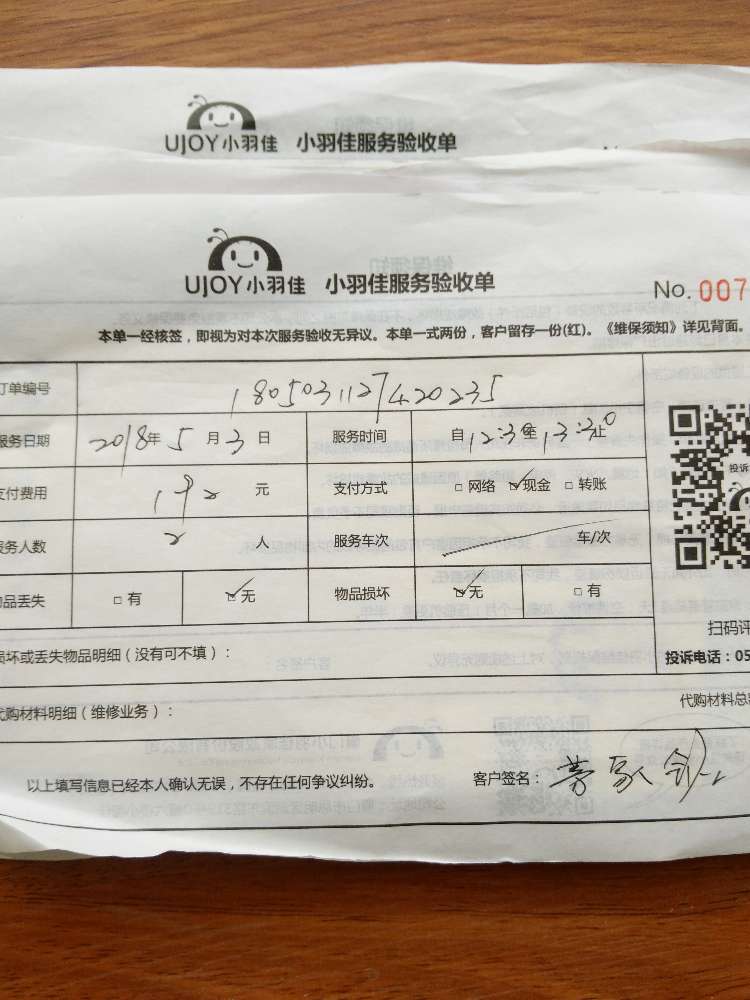 UJOY小羽佳 小羽佳服务验收单
UJOY小羽佳 小羽佳服务验收单
No. 007
本单一经核签，即视为对本次服务验收无异议。本单一式两份，客户留存一份(红)。《维保须知》详见背面。
订单编号 1805031127420235
服务日期 2018年 5 月 3 日 服务时间 自 12:30至 13:30止
支付费用 192 元 支付方式 □ 网络 ☑ 现金 □ 转账
服务人数 2 人 服务车次 车/次
物品丢失 □ 有 ☑ 无 物品损坏 ☑ 无 □ 有
投诉
扫码评
损坏或丢失物品明细（没有可不填）：
投诉电话：05
代购材料明细（维修业务）：
代购材料总
以上填写信息已经本人确认无误，不存在任何争议纠纷。 客户签名：